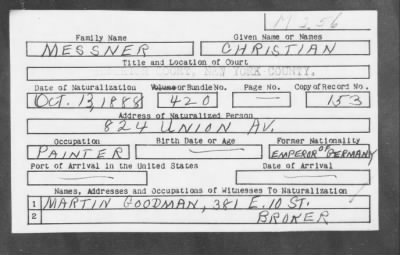 M 256
Family Name Given Name or Names
MESSNER CHRISTIAN
Title and Location of Court
COURT, NEW YORK COUNTY.
Date of Naturalization Volume or Bundle No. Page No. Copy of Record No.
OCT. 13, 1888 420 — 153
Address of Naturalized Person
824 UNION AV.
Occupation Birth Date or Age Former Nationality
PAINTER — EMPEROR OF GERMANY
Port of Arrival in the United States Date of Arrival
Names, Addresses and Occupations of Witnesses To Naturalization
1 MARTIN GOODMAN, 381 E. 10 ST.
2 BROKER